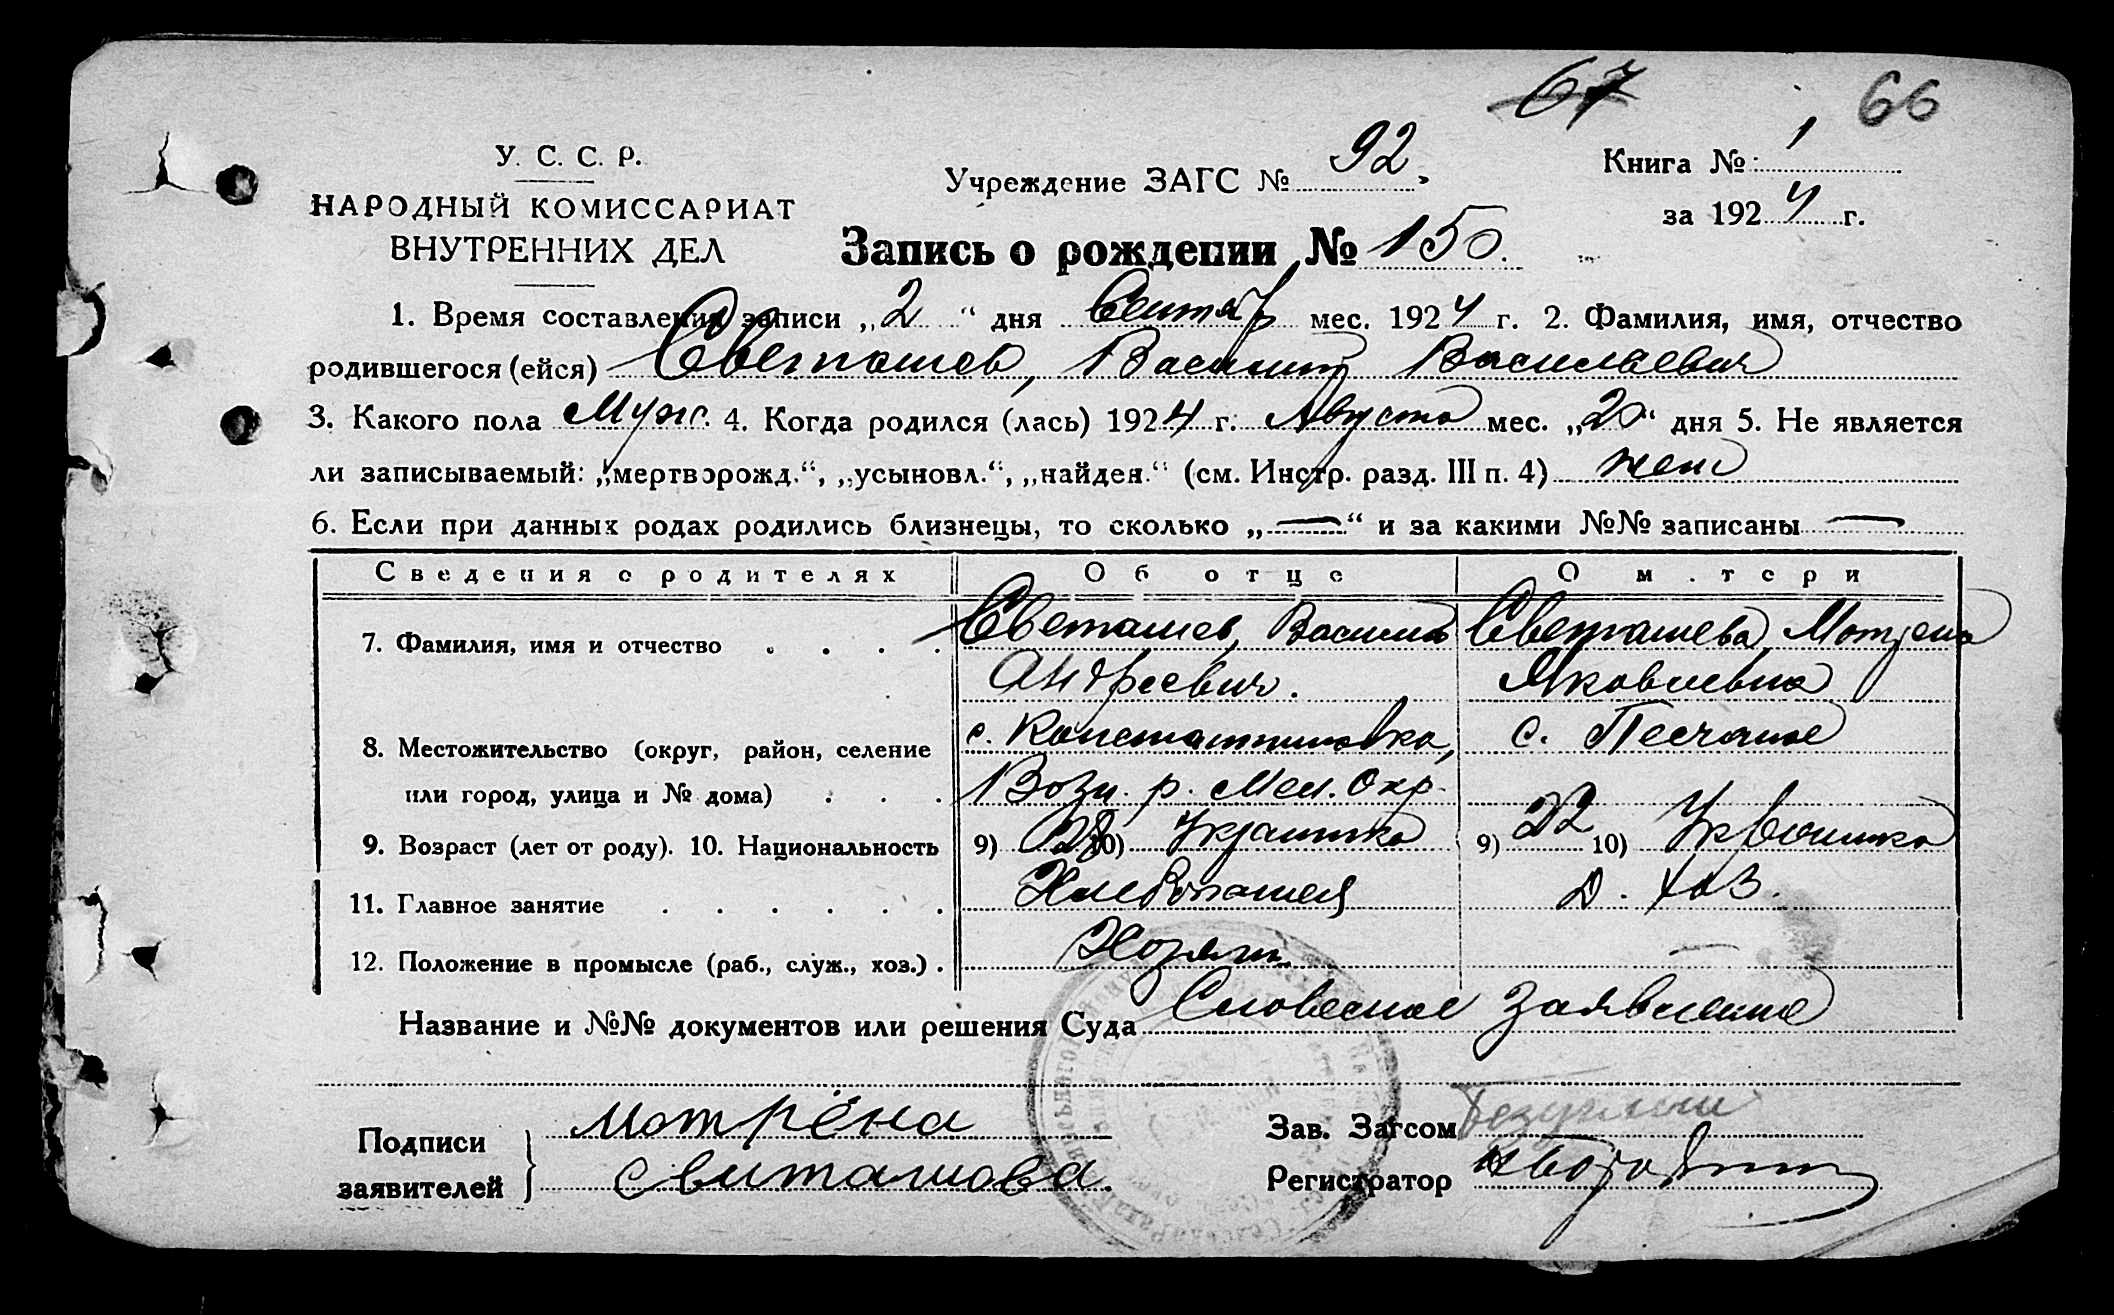 67 66
У. С. С. Р.
НАРОДНЫЙ КОМИССАРИАТ
ВНУТРЕННИХ ДЕЛ
Учреждение ЗАГС № 92.
Книга № 1
за 1924 г.
Запись о рождении № 150.
1. Время составления записи „2“ дня Сентяр мес. 1924 г. 2. Фамилия, имя, отчество
родившегося (ейся) Светашев, Василий Васильевич
3. Какого пола Муж. 4. Когда родился (лась) 1924 г. Августа мес. „20“ дня 5. Не является
ли записываемый: „мертворожд.“, „усыновл.“, „найден.“ (см. Инстр. разд. III п. 4) нет
6. Если при данных родах родились близнецы, то сколько „—“ и за какими №№ записаны —
Сведения о родителях Об отце О матери
7. Фамилия, имя и отчество . . . . Светашев, Василий Светашева Мотрена
Андреевич. Яковлевна
8. Местожительство (округ, район, селение с. Константиновка, с. Песчаное
или город, улица и № дома) . . . Возн. р. Мел. Окр.
9. Возраст (лет от роду). 10. Национальность 9) 28 10) Украинка 9) 22 10) Украинка
11. Главное занятие . . . . . . Хлебопашец Д. хоз.
12. Положение в промысле (раб., служ., хоз.) . Хозяин —
Название и №№ документов или решения Суда Словесное заявление
Подписи заявителей } Мотрёна
Свиташова.
Зав. Загсом
Регистратор